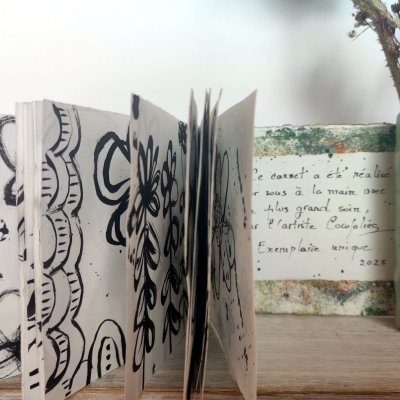 Ce carnet a été réalisé
pour vous à la main avec
plus grand soin,
par l'artiste
Exemplaire unique
2023